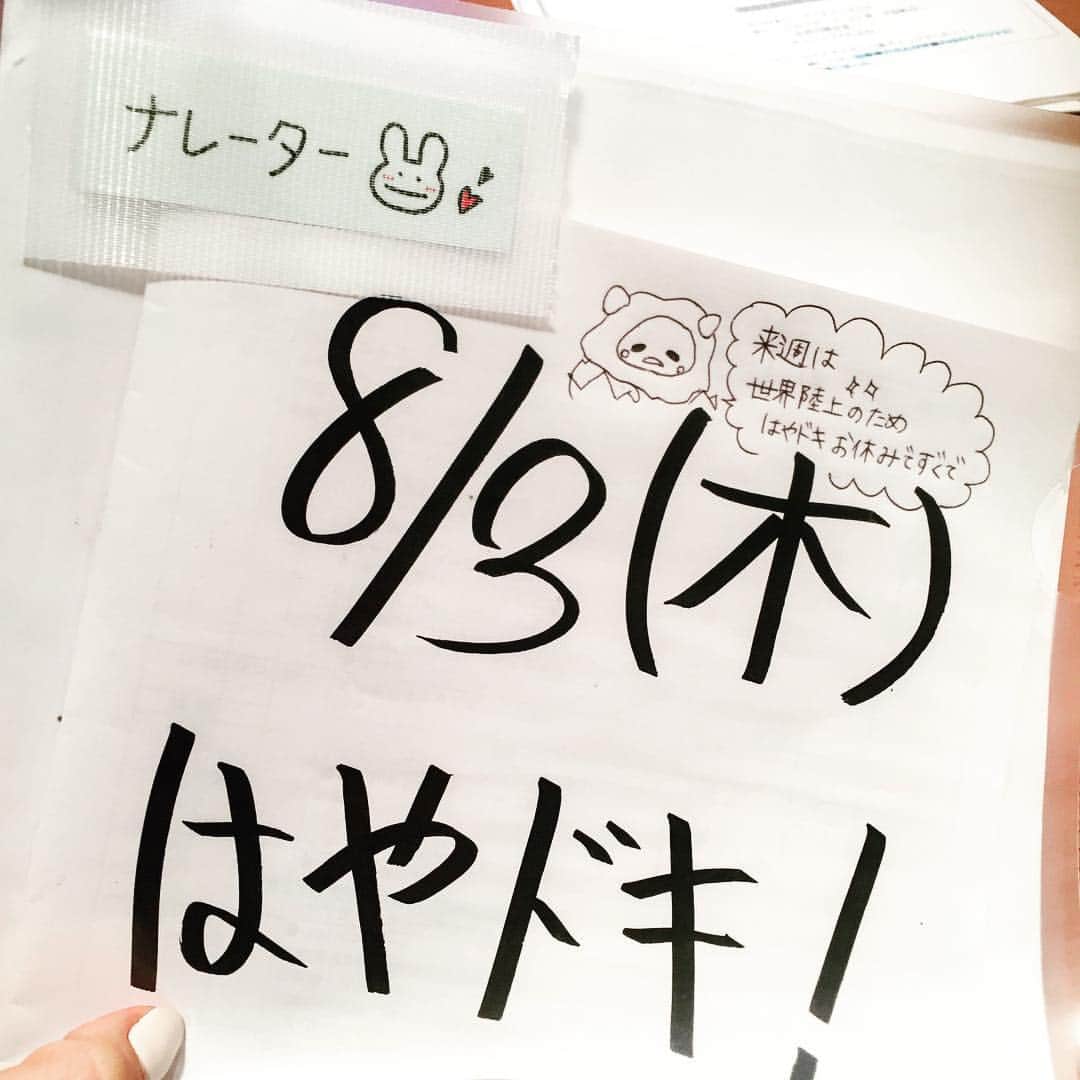 ナレーター
来週は
世界陸上のため
はやドキお休みですぐで
8/3(木)
はやドキ!